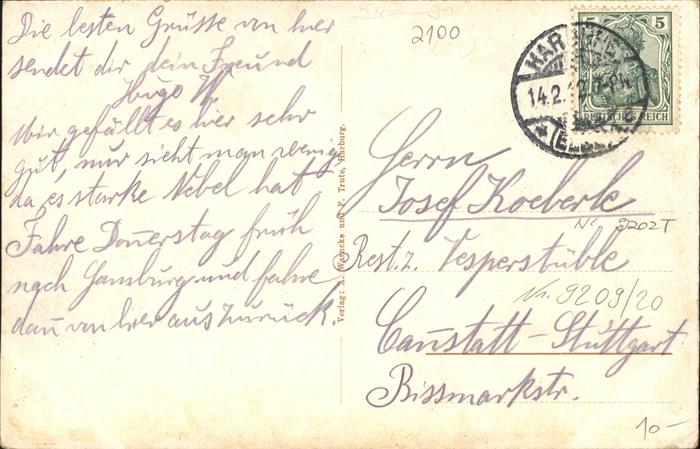 Die besten Grüsse von hier
sendet dir dein Freund
Hugo W.
Wir gefällt es hier sehr
gut, nur sieht man wenig
da es starke Nebel hat
Fahre Donerstag früh
nach Hamburg und fahre
dan von hier aus zurück.
Verlag: A. Warncke und F. Trute, Harburg.
2100
HARBURG
14.2.12. 7-8N
(ELBE)
5 5
DEUTSCHES REICH
Herrn
Josef Koeberle
N 9202T
Rest. z. Vesperstüble
Nr. 9209/20
Canstatt-Stuttgart
Bissmarkstr.
10-